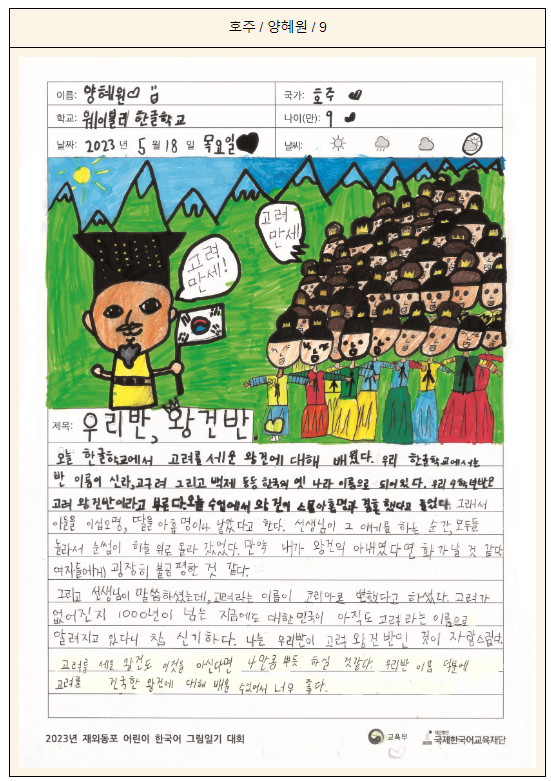 호주 / 양혜원 / 9
이름: 양혜원
국가: 호주
학교: 웨이블리 한글학교
나이(만): 9
날짜: 2023 년 5 월 18 일 목요일
날씨:
고려 만세!
고려 만세!
제목: 우리반, 왕건반.
오늘 한글학교에서 고려를 세운 왕건에 대해 배웠다. 우리 한글학교에서는
반 이름이 신라, 고구려 그리고 백제 등등 한국의 옛 나라 이름으로 되어있다. 우리 4학년반은
고려 왕건반이라고 부른다. 오늘 수업에서 왕건이 스물아홉명과 결혼했다고 들었다. 그래서
아들을 이십오명, 딸을 아홉명이나 낳았다고 한다. 선생님이 그 얘기를 하는 순간, 모두들
놀라서 눈썹이 하늘 위로 올라 갔었다. 만약 내가 왕건의 아내였다면 화가날 것 같다.
여자들에게 굉장히 불공평한 것 같다.
그리고 선생님이 말씀하셨는데, 고려라는 이름이 코리아로 변했다고 하셨다. 고려가
없어진지 1000년이 넘는 지금에도 대한민국이 아직도 고려라는 이름으로
알려지고 있다니 참 신기하다. 나는 우리반이 고려 왕건반인 것이 자랑스럽다.
고려를 세운 왕건도 이것을 아신다면 나만큼 뿌듯 하실 것같다. 우리반 이름 덕분에
고려를 건국한 왕건에 대해 배울 수있어서 너무 좋다.
2023년 재외동포 어린이 한국어 그림일기 대회
교육부
재단법인 국제한국어교육재단